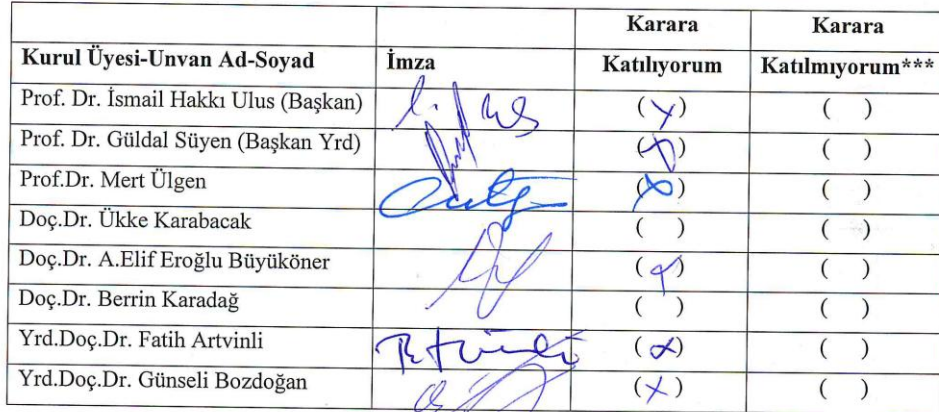 Karara Karara
Kurul Üyesi-Unvan Ad-Soyad İmza Katılıyorum Katılmıyorum***
Prof. Dr. İsmail Hakkı Ulus (Başkan) (X) ( )
Prof. Dr. Güldal Süyen (Başkan Yrd) (X) ( )
Prof.Dr. Mert Ülgen (X) ( )
Doç.Dr. Ükke Karabacak ( ) ( )
Doç.Dr. A.Elif Eroğlu Büyüköner (X) ( )
Doç.Dr. Berrin Karadağ ( ) ( )
Yrd.Doç.Dr. Fatih Artvinli (X) ( )
Yrd.Doç.Dr. Günseli Bozdoğan (X) ( )